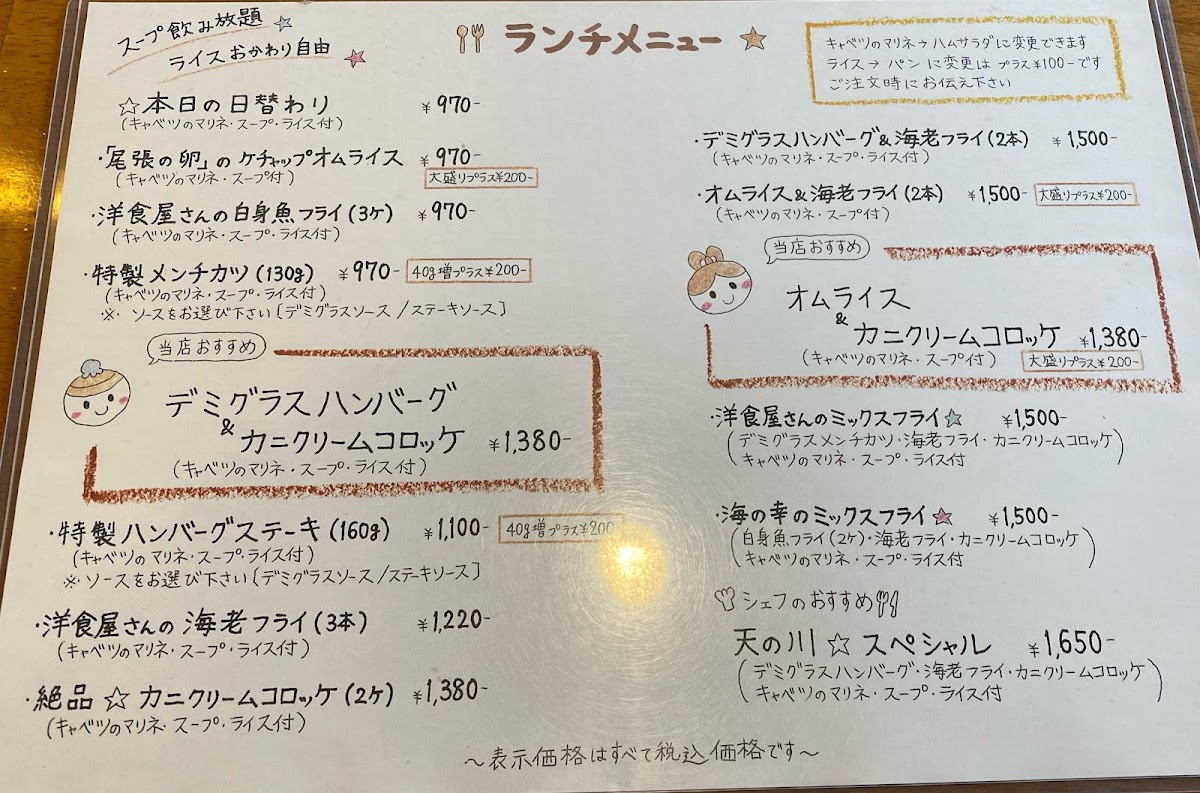 スープ飲み放題☆
ライスおかわり自由☆
ランチメニュー☆
キャベツのマリネ→ハムサラダに変更できます
ライス→パンに変更はプラス¥100-です
ご注文時にお伝え下さい
☆本日の日替わり ¥970-
(キャベツのマリネ・スープ・ライス付)
・「尾張の卵」のケチャップオムライス ¥970-
(キャベツのマリネ・スープ付) 大盛りプラス¥200-
・洋食屋さんの白身魚フライ(3ケ) ¥970-
(キャベツのマリネ・スープ・ライス付)
・特製メンチカツ(130g) ¥970- 40g増プラス¥200-
(キャベツのマリネ・スープ・ライス付)
※・ソースをお選び下さい[デミグラスソース/ステーキソース]
当店おすすめ
デミグラスハンバーグ
&カニクリームコロッケ ¥1,380-
(キャベツのマリネ・スープ・ライス付)
・特製ハンバーグステーキ(160g) ¥1,100- 40g増プラス¥200
(キャベツのマリネ・スープ・ライス付)
※・ソースをお選び下さい[デミグラスソース/ステーキソース]
・洋食屋さんの海老フライ(3本) ¥1,220-
(キャベツのマリネ・スープ・ライス付)
・絶品☆カニクリームコロッケ(2ケ) ¥1,380-
(キャベツのマリネ・スープ・ライス付)
・デミグラスハンバーグ&海老フライ(2本) ¥1,500-
(キャベツのマリネ・スープ・ライス付)
・オムライス&海老フライ(2本) ¥1,500- 大盛りプラス¥200-
(キャベツのマリネ・スープ付)
当店おすすめ
オムライス
&カニクリームコロッケ ¥1,380-
(キャベツのマリネ・スープ付) 大盛りプラス¥200-
・洋食屋さんのミックスフライ☆ ¥1,500-
(デミグラスメンチカツ・海老フライ・カニクリームコロッケ
キャベツのマリネ・スープ・ライス付)
・海の幸のミックスフライ☆ ¥1,500-
(白身魚フライ(2ケ)・海老フライ・カニクリームコロッケ
キャベツのマリネ・スープ・ライス付)
シェフのおすすめ
天の川☆スペシャル ¥1,650-
(デミグラスハンバーグ・海老フライ・カニクリームコロッケ
キャベツのマリネ・スープ・ライス付)
～表示価格はすべて税込価格です～